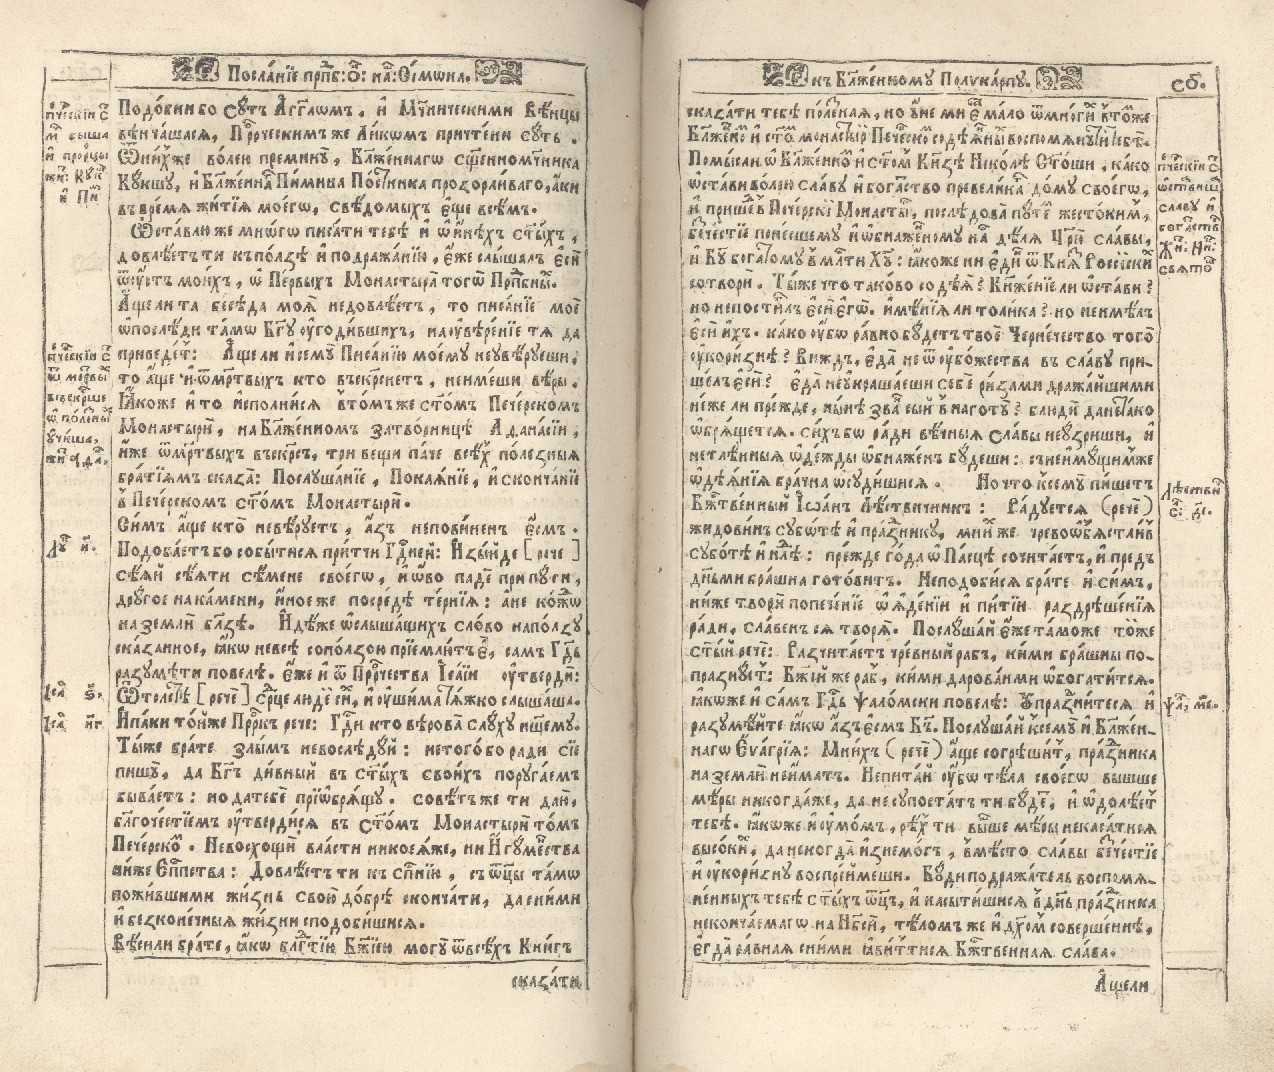 Посла́нїе прпⷣб: ѻ҃: на́: Сїмѡна.
Подо́бни бо сꙋтъ А́гг҃лѡмъ, и҆ Мч҃ническими вѣнцы
вѣнча́шася, Прⷪ҇ро́ческимъ же ли́комъ причте́ни сꙋть.
Ѿни́хже во́лею премину̀, Бл҃же́ннагѡ сщ҃енномч҃ника
Кꙋ́кшꙋ, и҆ Бл҃же́нна Пи́мина По́стника прозорли́ваго, а҆́ки
въ вре́мя житїя̀ моегѡ̀, свѣ́домыхъ є҆ще всѣ́мъ.
Ѡ҆ста́влю же мнѡ́гѡ писа́ти тебѣ̀ и҆ ѡ҆ и҆нѣ́хъ ст҃ы́хъ,
довлѣ́етъ ти къ по́лзѣ и҆ подража́нїю, є҆́же слы́шалъ є҆сѝ
ѿ оу҆́стъ мои́хъ, ѡ҆ Пе́рвыхъ Монастыра̀ тогѡ̀ Прпⷣбны́.
А҆́ще ли та бесѣ́да моя̀ недовлѣ́етъ, то писа́нїе моѐ
ѡ҆ послѣ́ди та́мѡ Бг҃ꙋ оу҆годи́вшихъ, на оу҆вѣре́нїе тя да
приведе́тъ: А҆́ще ли и҆ семꙋ̀ Писа́нїю моемꙋ неувѣ́рꙋеши,
то а҆́ще и҆ ѿ мр҃твыхъ кто въскр҃снетъ, неи́меши вѣ́ры.
Ꙗ҆́коже и҆ то и҆спо́лнися в то́мъже ст҃о́мъ Пече́рскомъ
Монастырѝ, на Бл҃же́нномъ затво́рницѣ Аѳана́сїи,
и҆́же ѿ мр҃твыхъ въскр҃съ, три ве́щи па́че всѣ́х поле́зныя
бра́тїямъ сказа̀: Послꙋша́нїе, Покая́нїе, и҆ сконча́нїе
в Пече́рскомъ ст҃о́мъ Монастырѝ.
Си́мъ а҆́ще кто̀ невѣ́рꙋетъ, а҆́зъ непови́ненъ є҆́смъ.
Подоба́етъ бо событися при́тчи Гдⷭ҇ней: И҆зы́йде [рече]
сѣ́яй сѣ́яти сѣ́мене своегѡ, и҆ ѡ҆́во паде при пꙋти,
дрꙋгое на ка́мени, и҆́ное же посре́дѣ те́рнїя: а҆ не ко́ждѡ
на землѝ бл҃зѣ. И҆дѣ́же ѡ҆ слы́шащихъ сло́во на по́лзꙋ
ска́занное, ꙗ҆́кѡ не всѝ со по́лзою прїе́млютъ є҆, самъ Гдⷭ҇ь
разꙋмѣ́ти повелѣ. Є҆́же и҆ ѿ Прⷪ҇ро́чества І҆са́їи оу҆твердѝ:
Ѿтолстѣ̀ [речѐ] срⷣце люде́й си́х, и҆ оу҆ши́ма тя́жко слы́шаша.
И҆ па́ки то́йже Прⷪ҇ро́къ рече: Гдⷭ҇и кто вѣ́рова слꙋхꙋ на́шемꙋ.
Ты́же бра́те злы́мъ невослѣ́дꙋй: не того́ бо ра́ди сїе
пишꙋ̀, да Бг҃ъ ди́вный въ ст҃ы́хъ свои́хъ порꙋга́емъ
быва́етъ: но да тебѐ прїѡбря́щꙋ. совѣ́тъ же ти даю̀,
благоче́стїемъ оу҆твердися въ ст҃о́мъ Монастырѝ то́мъ
Пече́рско. Невосхощѝ вла́сти никоея́же, ни И҆гꙋ́менства
ни́же Єпⷭ҇кпства: Довлѣ́етъ ти къ сп҃се́нїю, съ ѿцы̀ та́мѡ
пожи́вшими жи́знь свою до́брѣ сконча́ти, да сни́ми
и҆ бесконе́чныя жи́зни сподобишися.
Вѣ́сили бра́те, ꙗ҆́кѡ бл҃гдⷣтїю Бж҃їею могꙋ̀ ѿ всѣ́хъ Кни́гъ
сказа́ти
Пе́ческїи
м҃ бы́ша
и҆ проро́цы
жи́: Кꙋк
и҆ Пи́
Пе́ческїи
ѿ ме́ртвы
въскр҃ше
ѡ҆ поле́зны
оу҆чи́ша,
жи́: Аѳа.
Лꙋ и҃.
І҆са́ ѕ҃.
І҆са́ н҃г.
къ Бл҃же́нномꙋ Полика́рпꙋ.
сѳ҃.
сказа́ти тебѣ̀ поле́зная, но оу҆́не ми є҆ ма́ло ѿ мно́гих в то́мже
Бл҃же́нно и҆ ст҃о монастырѝ Пече́рско содѣ́янны воспомянꙋти тебѣ̀.
Помы́сли ѡ҆ Бл҃же́нно и҆ ст҃о́м Кн҃зѣ Нико́лѣ Ст҃о́ши, ка́ко
ѡ҆ста́ви во́лею сла́вꙋ и҆ бога́тство превели́ка до́мꙋ своегѡ̀,
и҆ прише́д в Пече́рскїй Монасты́рь, послѣ́дова пꙋте́м жесто́ким,
безче́стїе поне́сшемꙋ и҆ ѡ҆бнаже́номꙋ на́с дѣ́ля Црⷭ҇ю сла́вы,
и҆ Бг҃ꙋ бога́томꙋ в ми́лости Хꙋ: ꙗ҆́коже ни є҆ди́н ѿ Кня́з Россі́йски
сотворѝ. Ты́же что тако́во содѣ́я? Кн҃же́нїе ли ѡ҆ста́ви?
но непости́гл є҆сѝ є҆гѡ̀. и҆мѣ́нїя ли толи́ка? но неимѣ́лъ
є҆сѝ и҆́хъ. ка́ко оу҆́бѡ ра́вно бꙋ́детъ твоѐ Черне́чество того̀
оу҆кори́знѣ? Ви́ждъ, є҆да̀ не ѿ оу҆бо́жества въ сла́вꙋ при-
ше́лъ є҆сѝ? є҆да̀ неукраша́еши себѐ ри́зами дража́йшими
не́же ли пре́жде, ны́нѣ зва́н сый в наготꙋ̀? блюдѝ да не та́ко
ѡ҆бря́щется. си́хъ бѡ ра́ди вѣ́чныя сла́вы неꙋ́зриши, и҆
нетлѣ́нныя ѡ҆де́жды ѡ҆бнаже́нъ бꙋ́деши: съ неи́мꙋщим же
ѡ҆дѣя́нїя бра́чна ѡ҆сꙋ́дишися. Но что к семꙋ̀ пи́шетъ
Бжⷭ҇твенный І҆ѡа́нъ Лѣ́ствичникъ: Ра́дꙋется (речѐ)
жидови́нъ сꙋббо́тѣ и҆ пра́зникꙋ, мни́х же чревоѡбъя́стлив
сꙋббо́тѣ и҆ не́лѣ: пре́жде го́да ѡ҆ Па́сцѣ сочита́етъ, и҆ предъ
дн҃ьми бра́шна гото́витъ. Неподо́бися бра́те и҆ си́мъ,
ни́же творѝ попече́нїе ѡ҆ я҆де́нїи и҆ питїѝ раздрѣше́нїя
ра́ди, сла́венъ ся творя̀. Послꙋ́шай є҆́же та́може то́же
ст҃ы́й речѐ: Разчита́етъ чре́вный рабъ, ки́ми бра́шны по-
празнꙋ́ет: Бж҃їй же ра́б, ки́ми дарова́ними ѡ҆богати́тся.
ꙗ҆́кѡже и҆ са́мъ Гдⷭ҇ь Ѱало́мски повелѣ̀: Оу҆праз҄ни́теся и҆
разꙋмѣ́йте ꙗ҆́кѡ а҆́зъ є҆́смъ Бг҃ъ. Послꙋ́шай к семꙋ̀ и҆ Бл҃же́н-
нагѡ Єѵа́грїя: Мни́хъ (речѐ) а҆́ще согрѣши́т, пра́зника
на землѝ неи́матъ. Непита́й оу҆́бѡ тѣ́ла своегѡ̀ вы́шше
мѣ́ры никогда́же, да не сꙋпоста́тъ ти бꙋ́де, и҆ ѡ҆долѣ́ет
тебѣ. ꙗ҆́кѡже и҆ оу҆мо́мъ, ре́к ти вы́ше мѣ́ры некаса́тися
высо́ки, да не когда̀ и҆знемо́гъ, вмѣ́сто сла́вы безче́стїе
и҆ оу҆кори́знꙋ воспрїи́меши. Бꙋ́ди подража́тель воспомя-
не́нныхъ тебѣ ст҃ы́хъ ѿц҃ъ, и҆ насы́тишися в де́нь пра́зника
неконча́емагѡ на Нб҃сѝ, тѣ́ломъ же и҆ дх҃о́м соверше́ннѣ,
є҆гда ра́вная сни́ми ꙗ҆ви́т тися Бжⷭ҇твенная сла́ва.
А҆́ще ли
Пе́ческїи
ѡ҆ста́виш
сла́вꙋ и҆
бога́ств
Жи́: Ни́:
свято
Лѣ́ствич
с҃: д҃і.
Ѱа, м҃е.